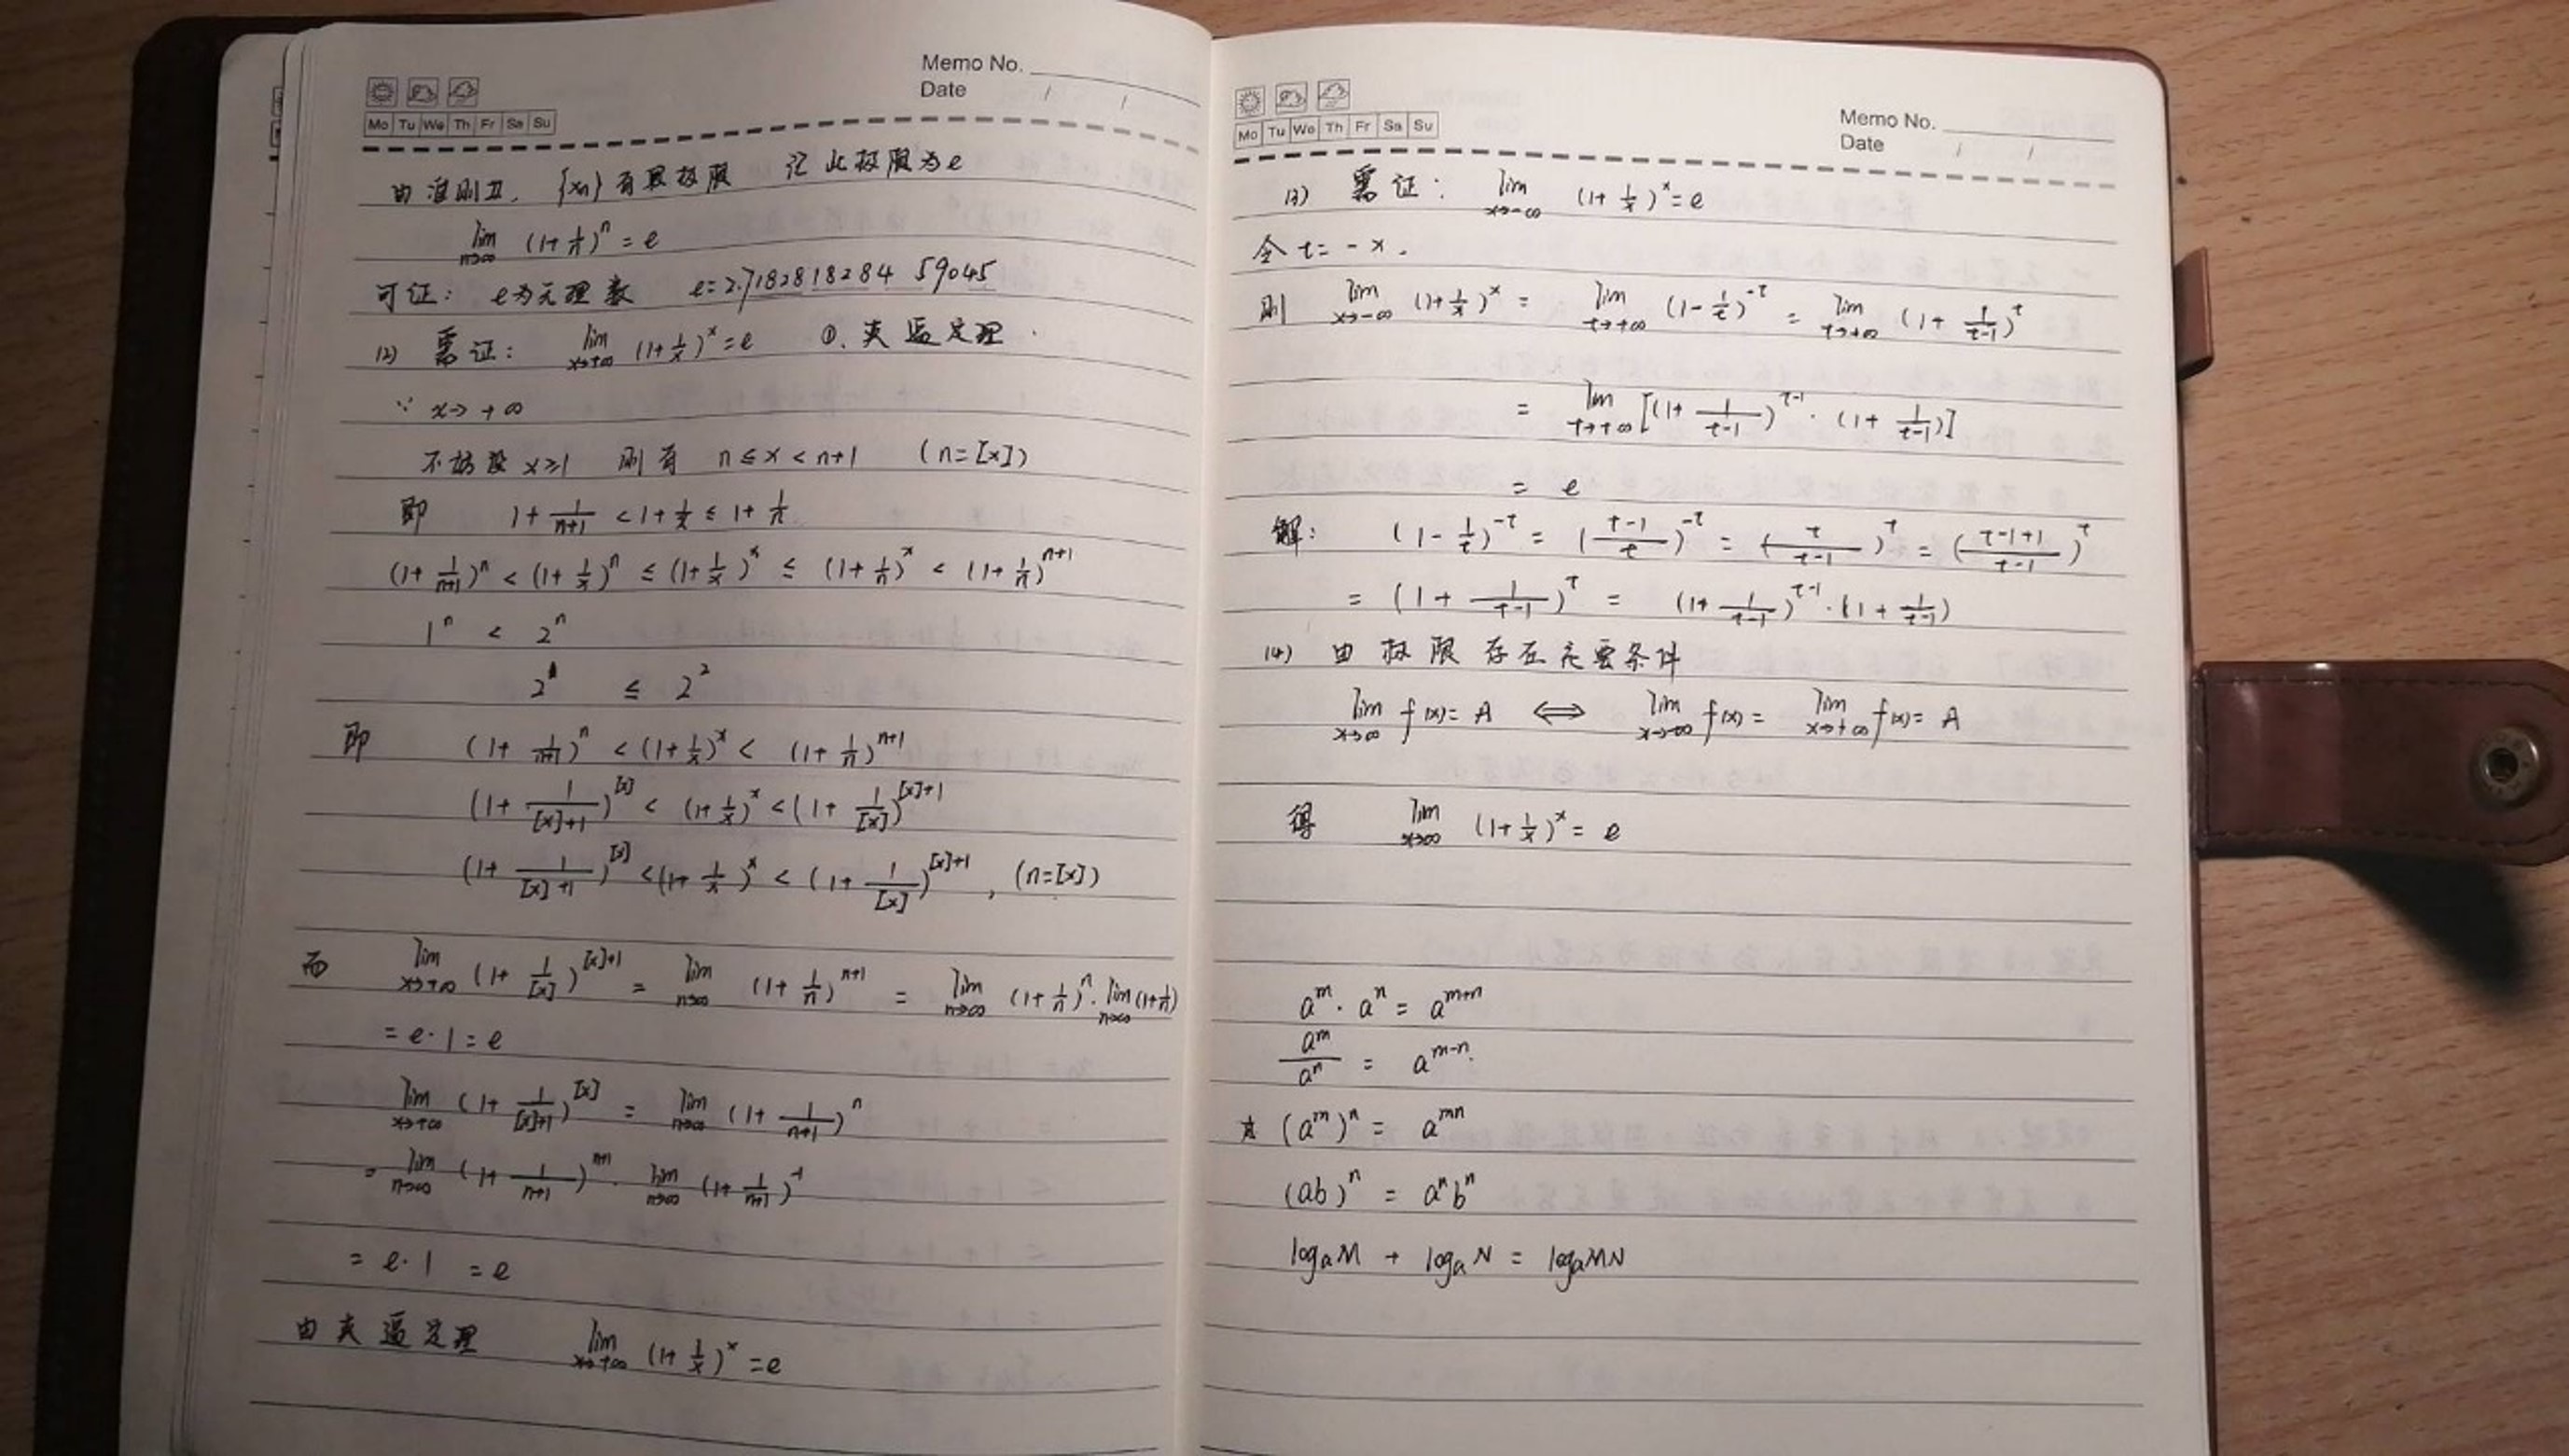 Memo No.
Date / /
Mo Tu We Th Fr Sa Su
由准则Ⅱ, {xn}有界极限 记此极限为e
lim n→∞ (1+1/n)^n = e
可证: e为无理数 e=2.718281828459045
(2) 需证: lim x→+∞ (1+1/x)^x = e ①. 夹逼定理.
∵ x→+∞
不妨设 x≥1 则有 n≤x<n+1 (n=[x])
即 1+1/(n+1) < 1+1/x ≤ 1+1/n
(1+1/(n+1))^n < (1+1/x)^n ≤ (1+1/x)^x ≤ (1+1/n)^x < (1+1/n)^(n+1)
1^n < 2^n
2^1 ≤ 2^2
即 (1+1/(n+1))^n < (1+1/x)^x < (1+1/n)^(n+1)
(1+1/([x]+1))^[x] < (1+1/x)^x < (1+1/[x])^([x]+1)
(1+1/([x]+1))^[x] < (1+1/x)^x < (1+1/[x])^([x]+1), (n=[x])
而 lim x→+∞ (1+1/[x])^([x]+1) = lim n→∞ (1+1/n)^(n+1) = lim n→∞ (1+1/n)^n · lim n→∞ (1+1/n)
= e·1 = e
lim x→+∞ (1+1/([x]+1))^[x] = lim n→∞ (1+1/(n+1))^n
= lim n→∞ (1+1/(n+1))^(n+1) · lim n→∞ (1+1/(n+1))^-1
= e·1 = e
由夹逼定理 lim x→+∞ (1+1/x)^x = e
Memo No.
Date / /
Mo Tu We Th Fr Sa Su
(3) 需证: lim x→-∞ (1+1/x)^x = e
令 t=-x.
则 lim x→-∞ (1+1/x)^x = lim t→+∞ (1-1/t)^-t = lim t→+∞ (1+1/(t-1))^t
= lim t→+∞ [(1+1/(t-1))^(t-1) · (1+1/(t-1))]
= e
解: (1-1/t)^-t = ((t-1)/t)^-t = (t/(t-1))^t = ((t-1+1)/(t-1))^t
= (1+1/(t-1))^t = (1+1/(t-1))^(t-1) · (1+1/(t-1))
(4) 由极限存在充要条件
lim x→∞ f(x)=A ⟺ lim x→-∞ f(x) = lim x→+∞ f(x) = A
得 lim x→∞ (1+1/x)^x = e
a^m · a^n = a^(m+n)
a^m/a^n = a^(m-n).
☆ (a^m)^n = a^(mn)
(ab)^n = a^n b^n
log_a M + log_a N = log_a MN